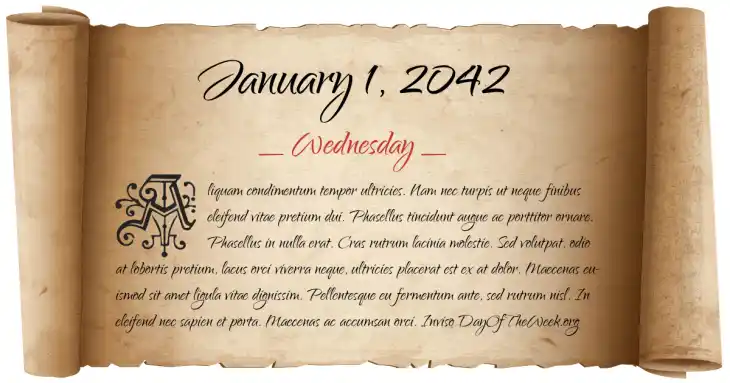 January 1, 2042
_ Wednesday _
Aliquam condimentum tempor ultricies. Nam nec turpis ut neque finibus
eleifend vitae pretium dui. Phasellus tincidunt augue ac porttitor ornare.
Phasellus in nulla erat. Cras rutrum lacinia molestie. Sed volutpat, odio
at lobortis pretium, lacus orci viverra neque, ultricies placerat est ex at dolor. Maecenas eu-
ismod sit amet ligula vitae dignissim. Pellentesque eu fermentum ante, sed rutrum nisl. In
eleifend nec sapien et porta. Maecenas ac accumsan orci. Inviso DayOfTheWeek.org